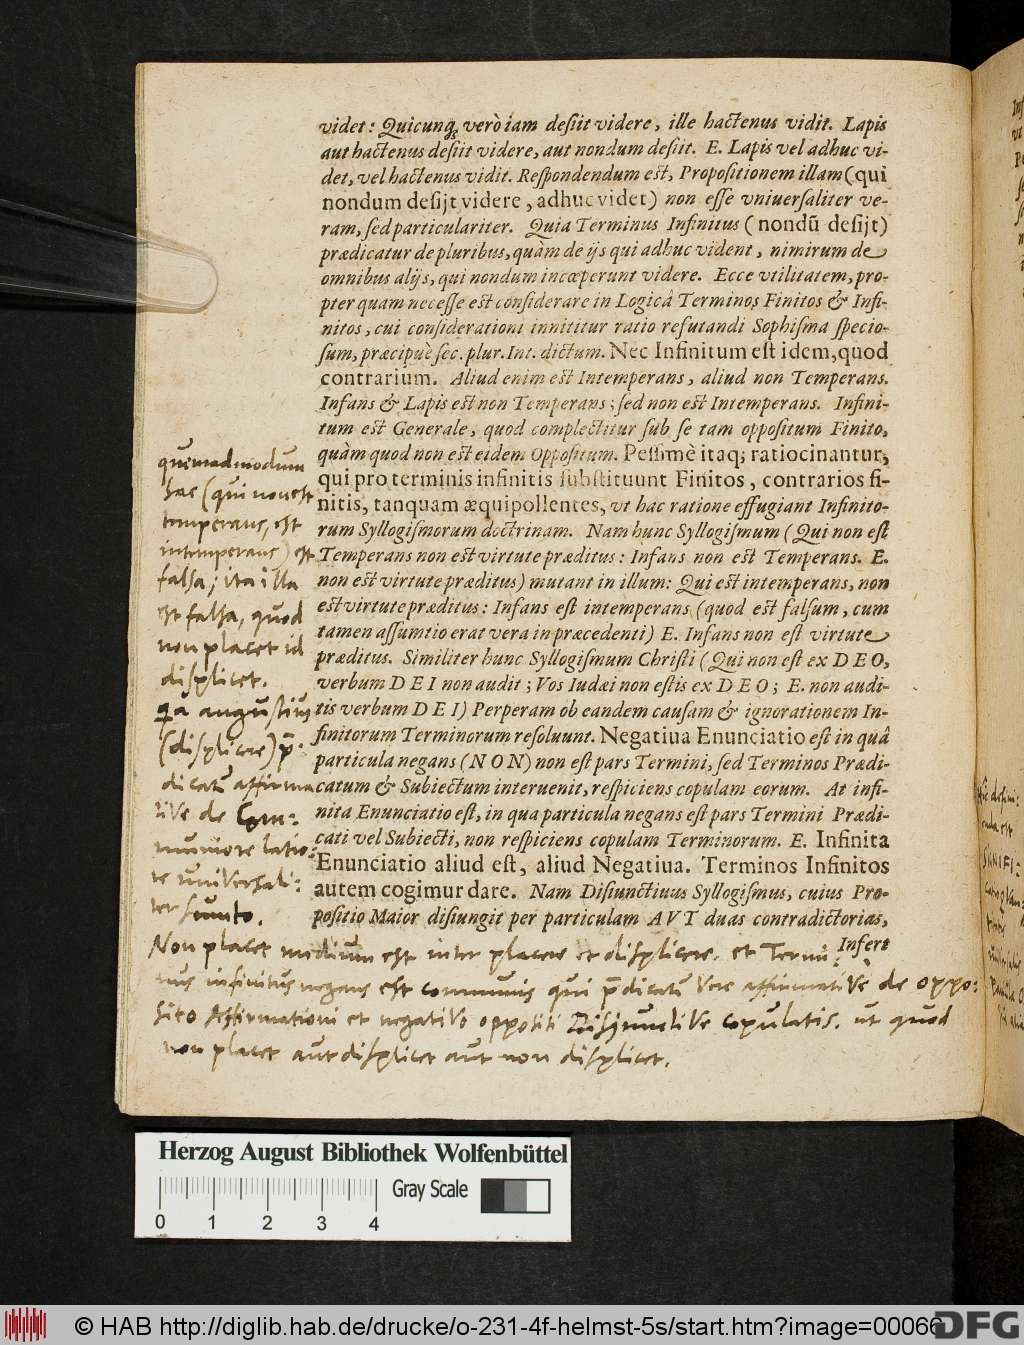 videt: Quicunq; verò iam desiit videre, ille hactenus vidit. Lapis
aut hactenus desiit videre, aut nondum desiit. E. Lapis vel adhuc vi-
det, vel hactenus vidit. Respondendum est, Propositionem illam (qui
nondum desijt videre, adhuc videt) non esse vniuersaliter ve-
ram, sed particulariter. Quia Terminus Infinitus (nondũ desijt)
prædicatur de pluribus, quàm de ijs qui adhuc vident, nimirum de
omnibus alijs, qui nondum incœperunt videre. Ecce vtilitatem, pro-
pter quam necesse est considerare in Logicâ Terminos Finitos & Infi-
nitos, cui considerationi innititur ratio refutandi Sophisma specio-
sum, præcipuè sec. plur. Int. dictum. Nec Infinitum est idem, quod
contrarium. Aliud enim est Intemperans, aliud non Temperans.
Infans & Lapis est non Temperans; sed non est Intemperans. Infini-
tum est Generale, quod complectitur sub se tam oppositum Finito,
quàm quod non est eidem Oppositum. Pessimè itaq; ratiocinantur,
qui pro terminis infinitis substituunt Finitos, contrarios fi-
nitis, tanquam æquipollentes, vt hac ratione effugiant Infinito-
rum Syllogismorum doctrinam. Nam hunc Syllogismum (Qui non est
Temperans non est virtute præditus: Infans non est Temperans. E.
non est virtute præditus) mutant in illum: Qui est intemperans, non
est virtute præditus: Infans est intemperans (quod est falsum, cum
tamen assumtio erat vera in præcedenti) E. Infans non est virtute
præditus. Similiter hunc Syllogismum Christi (Qui non est ex DEO,
verbum DEI non audit; Vos Iudæi non estis ex DEO; E. non audi-
tis verbum DEI) Perperam ob eandem causam & ignorationem In-
finitorum Terminorum resoluunt. Negatiua Enunciatio est in quâ
particula negans (NON) non est pars Termini, sed Terminos Prædi-
catum & Subiectum interuenit, respiciens copulam eorum. At infi-
nita Enunciatio est, in qua particula negans est pars Termini Prædi-
cati vel Subiecti, non respiciens copulam Terminorum. E. Infinita
Enunciatio aliud est, aliud Negatiua. Terminos Infinitos
autem cogimur dare. Nam Disiunctiuus Syllogismus, cuius Pro-
positio Maior disiungit per particulam AVT duas contradictorias,
Infert
quemadmodum
haec (qui non est
temperans, est
intemperans) est
falsa; ita illa
est falsa, quod
non placet id
displicet.
qa angustius
(displicere) p̄-
dicatũ affirma
tive de Com-
muniore latio-
re universali-
ter sumto.
Non placet medium est inter placere et displicere. et Termi-
nus infinitus negans est communis qui p̄dicatũ vere affirmative de oppo-
sito Affirmationi et negativo oppositi Disjunctive copulatis. ut quod
non placet aut displicet aut non displicet.
Herzog August Bibliothek Wolfenbüttel
Gray Scale
0 1 2 3 4
© HAB http://diglib.hab.de/drucke/o-231-4f-helmst-5s/start.htm?image=00066
DFG